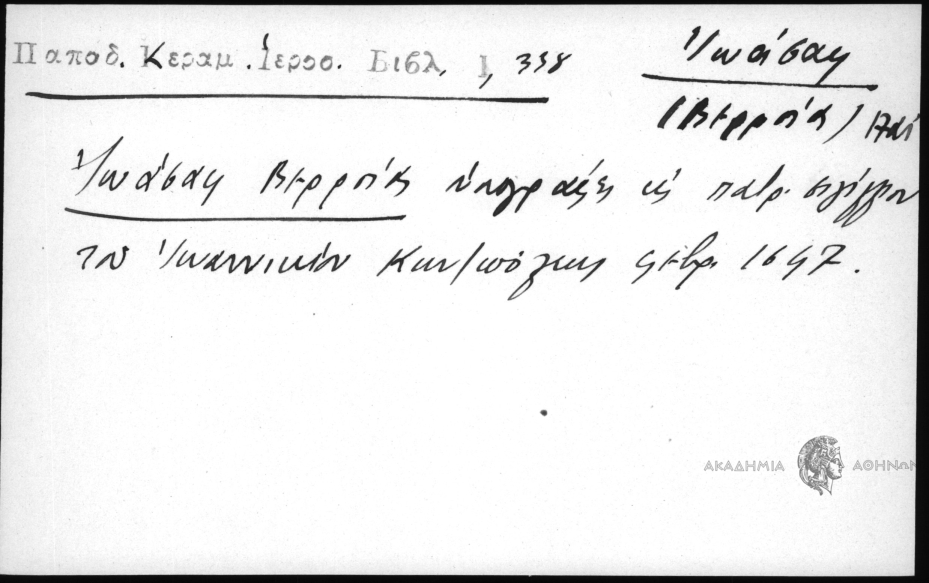 Παποδ. Κεραμ. Ἱεροσ. Βιβλ. 1, 338
Ἰωάσαφ
(Βερροίας)
Ἰωάσαφ Βερροίας ὑπογράφει εἰς πατρ. σιγίλλιον
τοῦ Ἰωαννικίου Κων/πόλεως φεβρ 1647.
ΑΚΑΔΗΜΙΑ ΑΘΗΝΩΝ